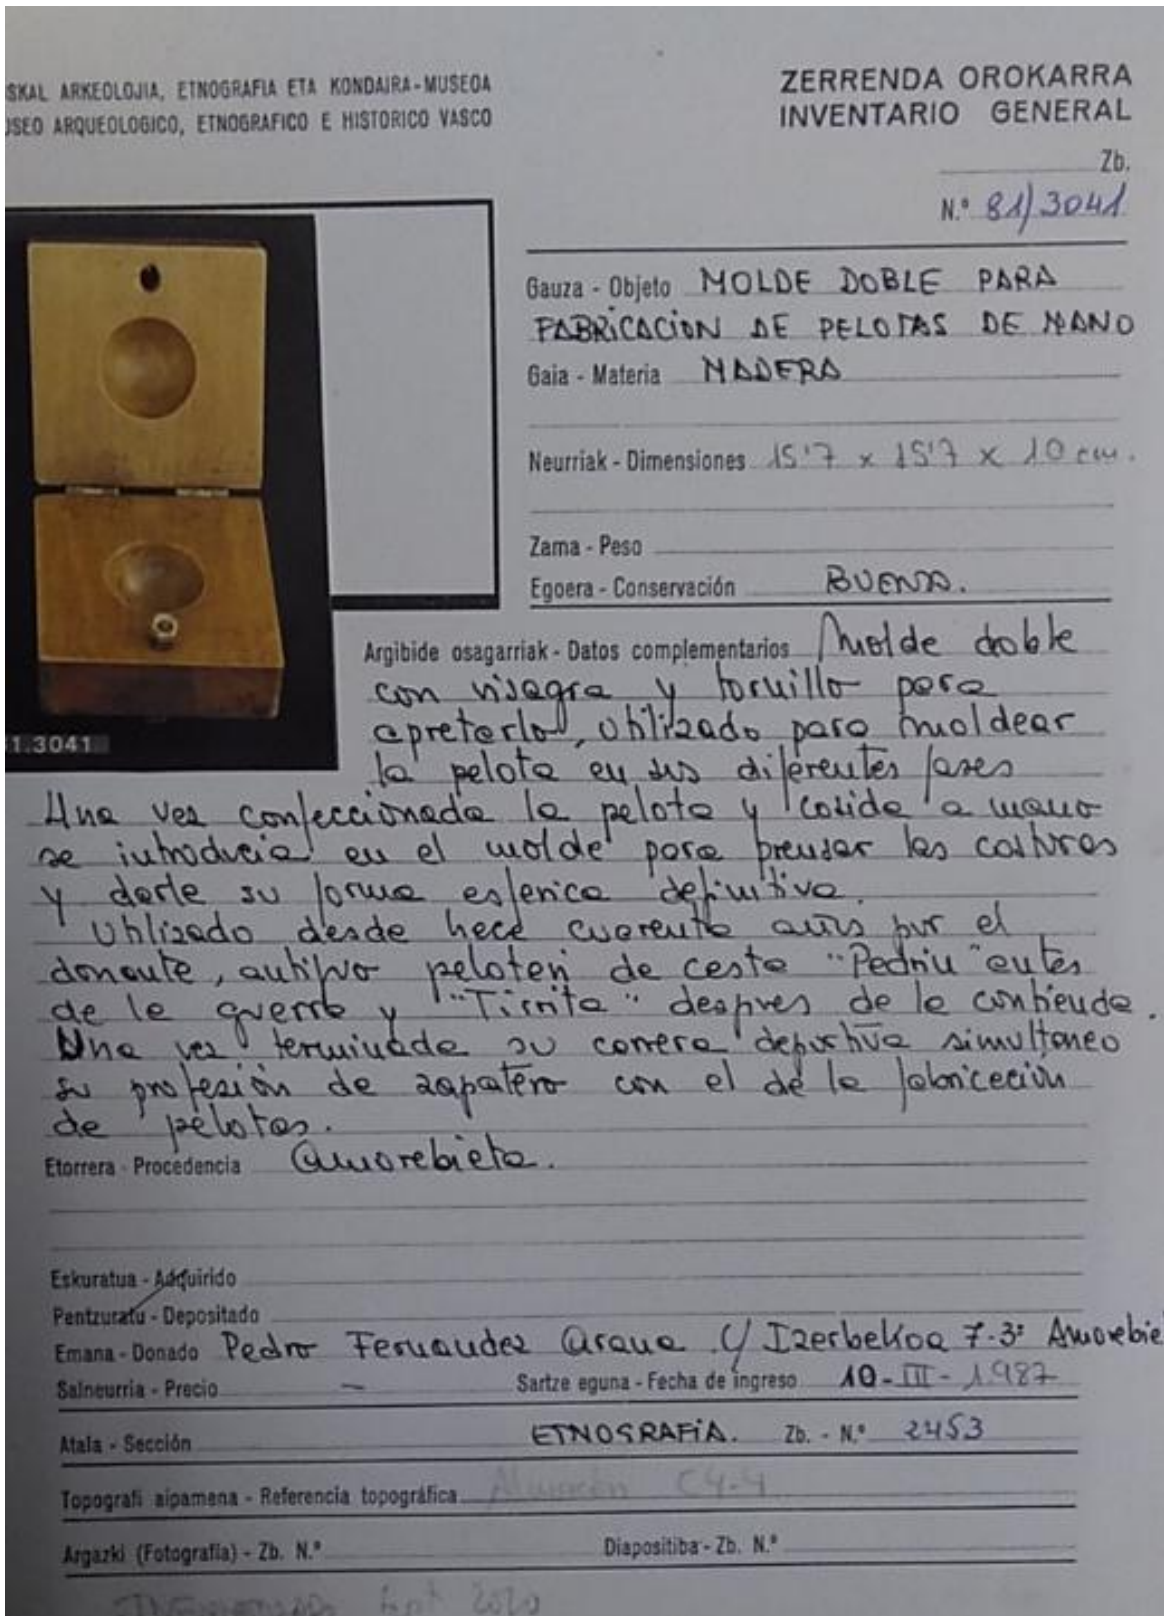 SKAL ARKEOLOJIA, ETNOGRAFIA ETA KONDAIRA-MUSEOA
USEO ARQUEOLOGICO, ETNOGRAFICO E HISTORICO VASCO
ZERRENDA OROKARRA
INVENTARIO GENERAL
Zb.
N.º 81/3041
Gauza - Objeto MOLDE DOBLE PARA
FABRICACION DE PELOTAS DE MANO
Gaia - Materia MADERA
Neurriak - Dimensiones 15'7 x 15'7 x 10 cm.
Zama - Peso
Egoera - Conservación BUENA.
1.3041
Argibide osagarriak - Datos complementarios Molde doble
con visagra y tornillo para
apretarlo, utilizado para moldear
la pelota en sus diferentes fases
Una vez confeccionada la pelota y cosida a mano
se introducia en el molde para prensar las costuras
y darle su forma esferica definitiva.
Utilizado desde hace cuarenta años por el
donante, antiguo pelotari de cesta "Pedriu" antes
de la guerra y "Tirrita" despues de la contienda.
Una vez terminada su carrera deportiva simultaneo
su profesión de zapatero con el de la fabricación
de pelotas.
Etorrera - Procedencia Amorebieta.
Eskuratua - Adquirido
Pentzuratu - Depositado
Emana - Donado Pedro Fernandez Arana C/ Izerbekoa 7-3º Amorebie
Salneurria - Precio —
Sartze eguna - Fecha de ingreso 10-III-1.987
Atala - Sección ETNOGRAFIA. Zb. - N.º 2453
Topografi aipamena - Referencia topográfica Almacén C4-4
Argazki (Fotografía) - Zb. N.º
Diapositiba - Zb. N.º
2020